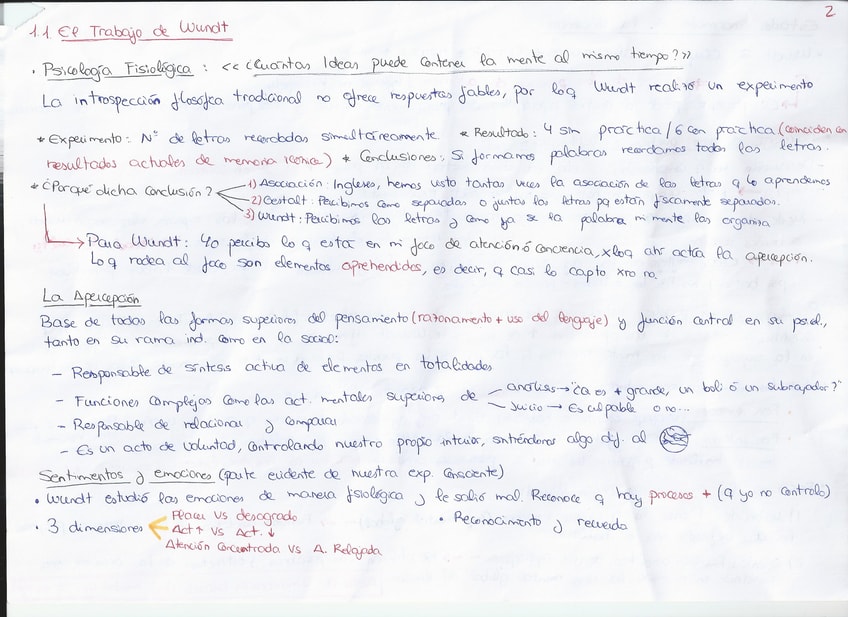 2
1.1 El Trabajo de Wundt
· Psicología Fisiológica : << ¿Cuántas Ideas puede contener la mente al mismo tiempo? >>
La introspección filosófica tradicional no ofrece respuestas fiables, por loq Wundt realizó un experimento
* Experimento: Nº de letras recordadas simultáneamente * Resultado: 4 sin práctica / 6 con practica (coinciden con
resultados actuales de memoria icónica) * Conclusiones: Si formamos palabras recordamos todas las letras.
* ¿Porqué dicha conclusión?
1) Asociación: Ingleses, hemos visto tantas veces la asociación de las letras q lo aprendemos
2) Gestalt: Percibimos como separadas o juntas las letras pq están físicamente separadas.
3) Wundt: Percibimos las letras y como ya se la palabra mi mente las organiza
→ Para Wundt: Yo percibo lo q está en mi foco de atención ó conciencia, xloq ahí actúa la apercepción.
Lo q rodea al foco son elementos aprehendidos, es decir, q casi lo capto xro no.
La Apercepción
Base de todas las formas superiores del pensamiento (razonamiento + uso del lenguaje) y función central en su psicol.,
tanto en su rama ind. como en la social:
– Responsable de síntesis activa de elementos en totalidades
– Funciones complejas como las act. mentales superiores de
análisis → "¿a es + grande, un boli ó un subrayador?"
Juicio → Es culpable o no...
– Responsable de relacionar y comparar
– Es un acto de voluntad, controlando nuestro propio interior, sintiéndonos algo dif. al
Sentimientos y emociones (parte evidente de nuestra exp. Consciente)
• Wundt estudió las emociones de manera fisiológica y le salió mal. Reconoce q hay procesos + (q yo no controlo)
· 3 dimensiones
Placer Vs desagrado
Act ↑ Vs Act. ↓
Atención Concentrada Vs A. Relajada
• Reconocimiento y recuerdo